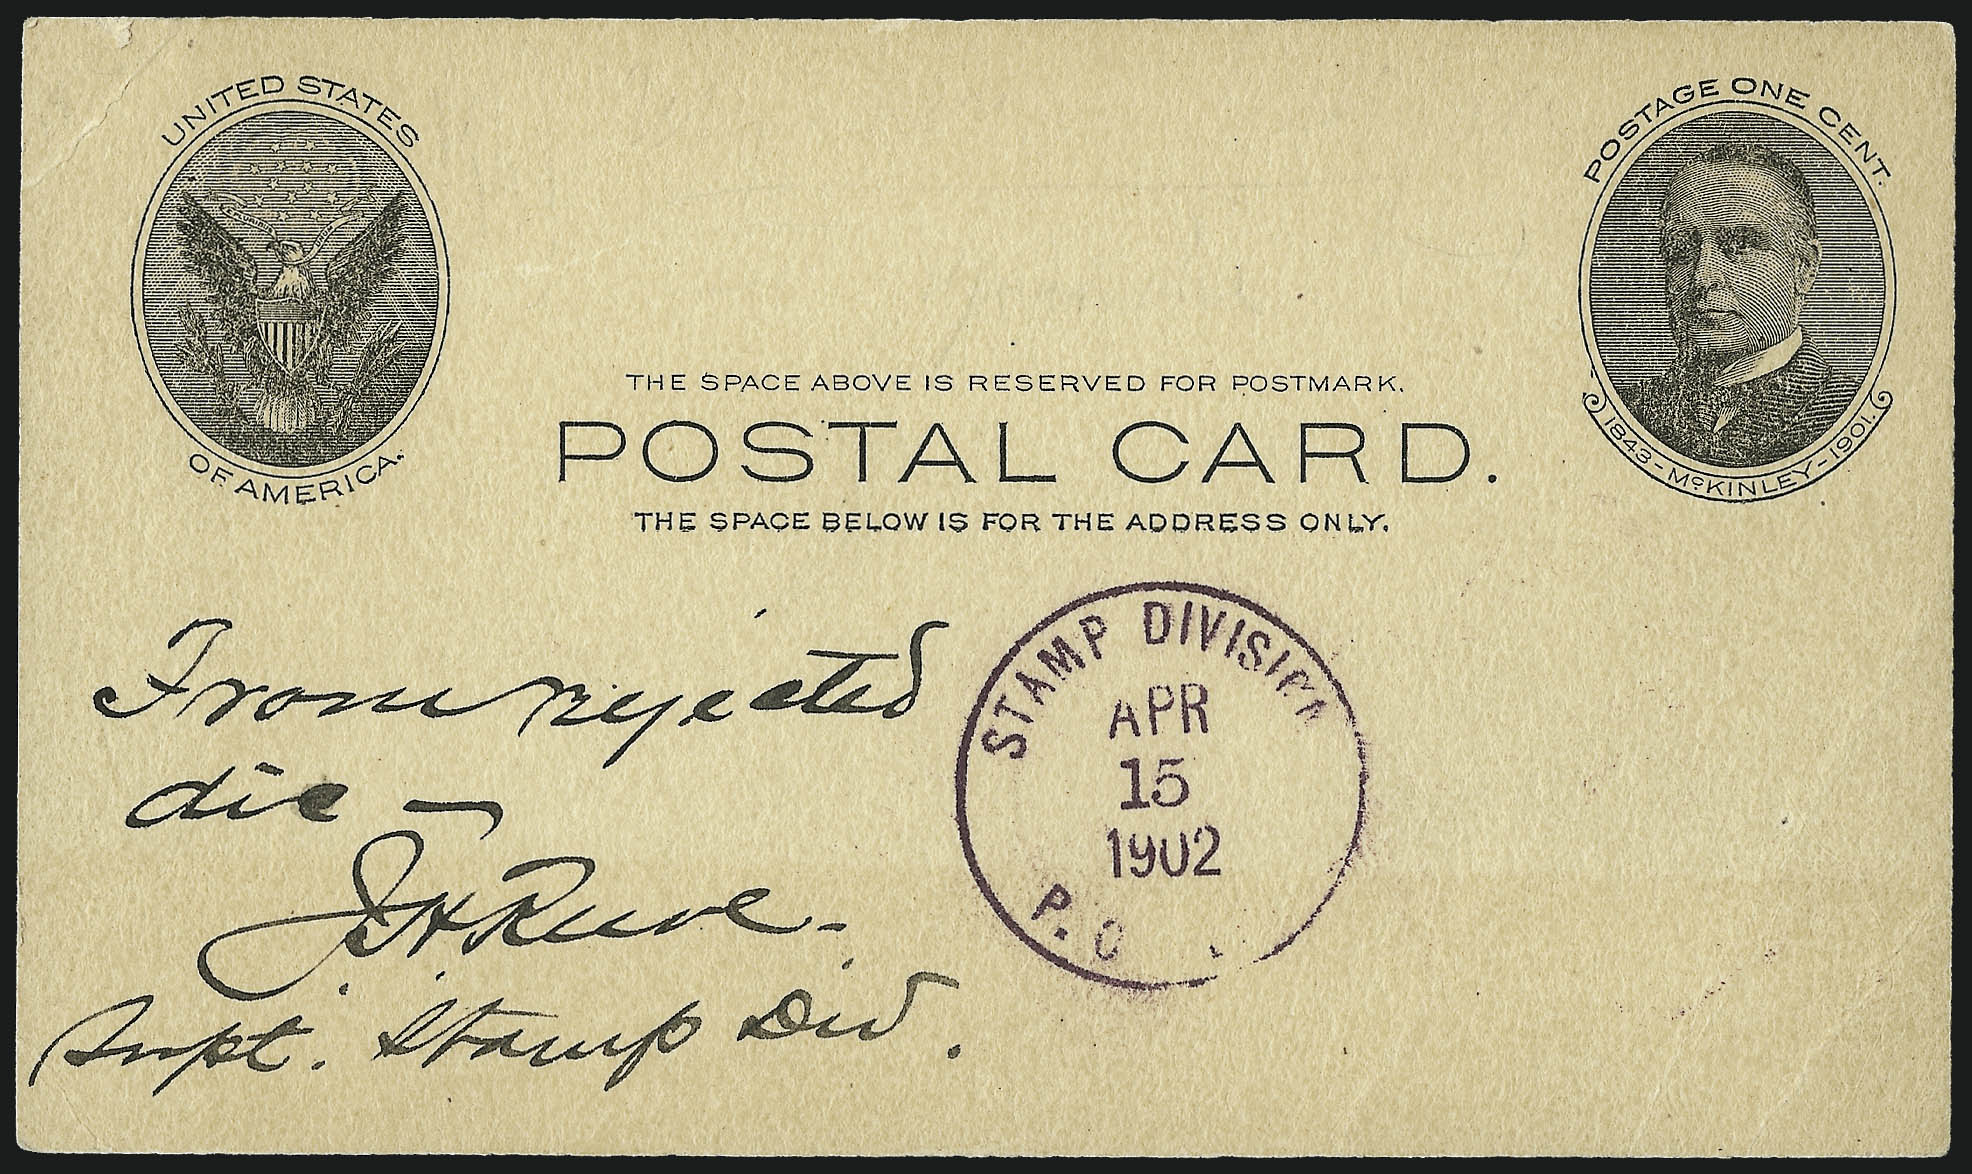 UNITED STATES
OF AMERICA.
POSTAGE ONE CENT.
1843-McKINLEY-1901.
THE SPACE ABOVE IS RESERVED FOR POSTMARK.
POSTAL CARD.
THE SPACE BELOW IS FOR THE ADDRESS ONLY.
STAMP DIVISION
APR
15
1902
P.O
From rejected
die —
J H Reeve.
Supt. Stamp Div.